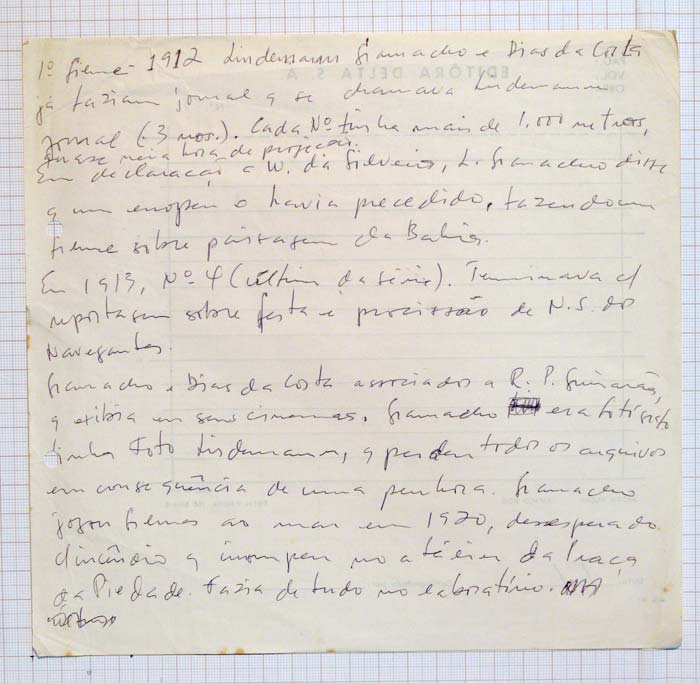 1º filme - 1912 Lindemann Gramacho e Dias da Costa
já faziam jornal q se chamava Lindemann
Jornal (-3 nos.). Cada Nº tinha mais de 1.000 metros,
quase meia hora de projeção.
Em declaração a W. da Silveira, L. Gramacho disse
q um europeu o havia precedido, fazendo um
filme sobre paisagem da Bahia.
Em 1913, Nº 4 (último da série). Terminava c/
reportagem sobre festa e procissão de N.S. dos
Navegantes.
Gramacho e Dias da Costa associados a R. P. Guimarães,
q exibia em seus cinemas. Gramacho era fotógrafo
tinha Foto Lindemann, q perdeu todos os arquivos
em consequência de uma penhora. Gramacho
jogou filmes ao mar em 1920, desesperado
c/ incêndio q irrompeu no atelier da Praça
da Piedade. Fazia de tudo no laboratório.
EDITÔRA DELTA S. A.
PAG.
VOL.